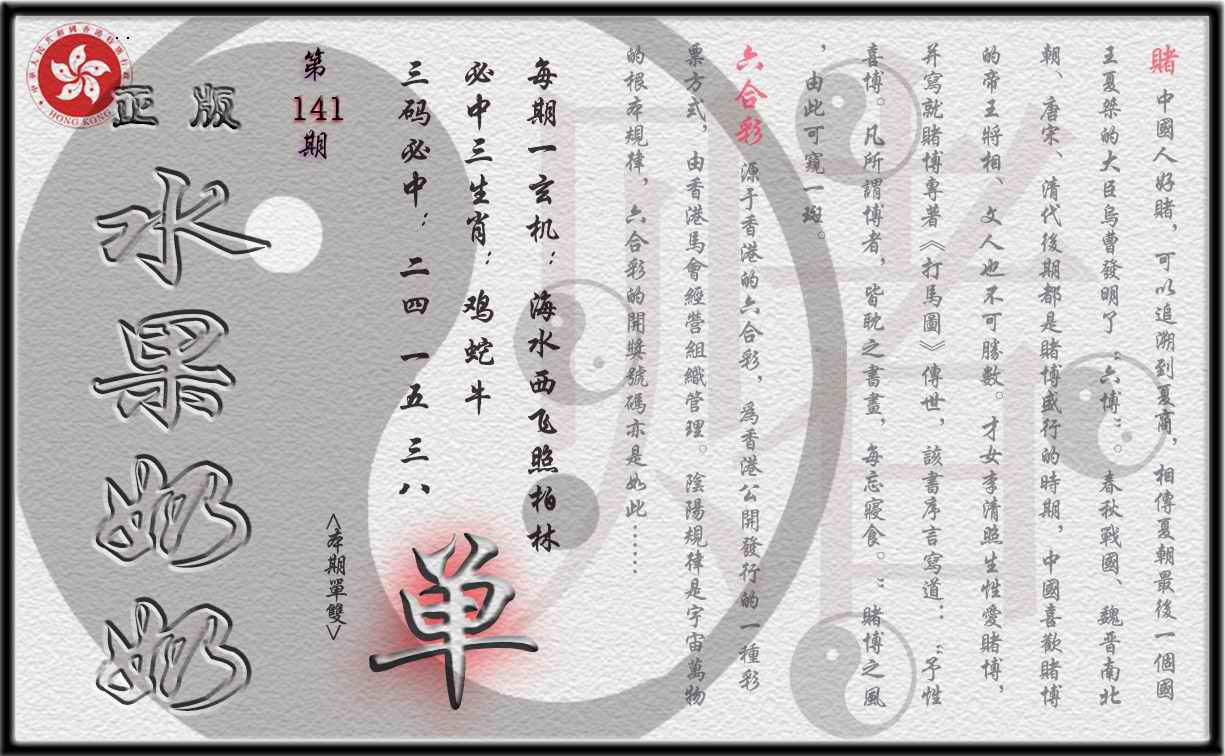 賭 中國人好賭，可以追溯到夏商，相傳夏朝最後一個國
王夏桀的大臣烏曹發明了“六博”。春秋戰國、魏晋南北
朝、唐宋、清代後期都是賭博盛行的時期，中國喜歡賭博
的帝王將相、文人也不可勝數。才女李清照生性愛賭博，
并寫就賭博專著《打馬圖》傳世，該書序言寫道：“予性
喜博。凡所謂博者，皆耽之書畫，每忘寢食。”賭博之風
，由此可窺一斑。
六合彩 源于香港的六合彩，爲香港公開發行的一種彩
票方式，由香港馬會經營組織管理。陰陽規律是宇宙萬物
的根本規律，六合彩的開獎號碼亦是如此……
每期一玄机：海水西飞照柏林
必中三生肖：鸡蛇牛
三码必中：二四 一五 三八
单
<本期單雙>
第
141
期
正版
水果奶奶
中華人民共和國香港特別行政區
HONG KONG